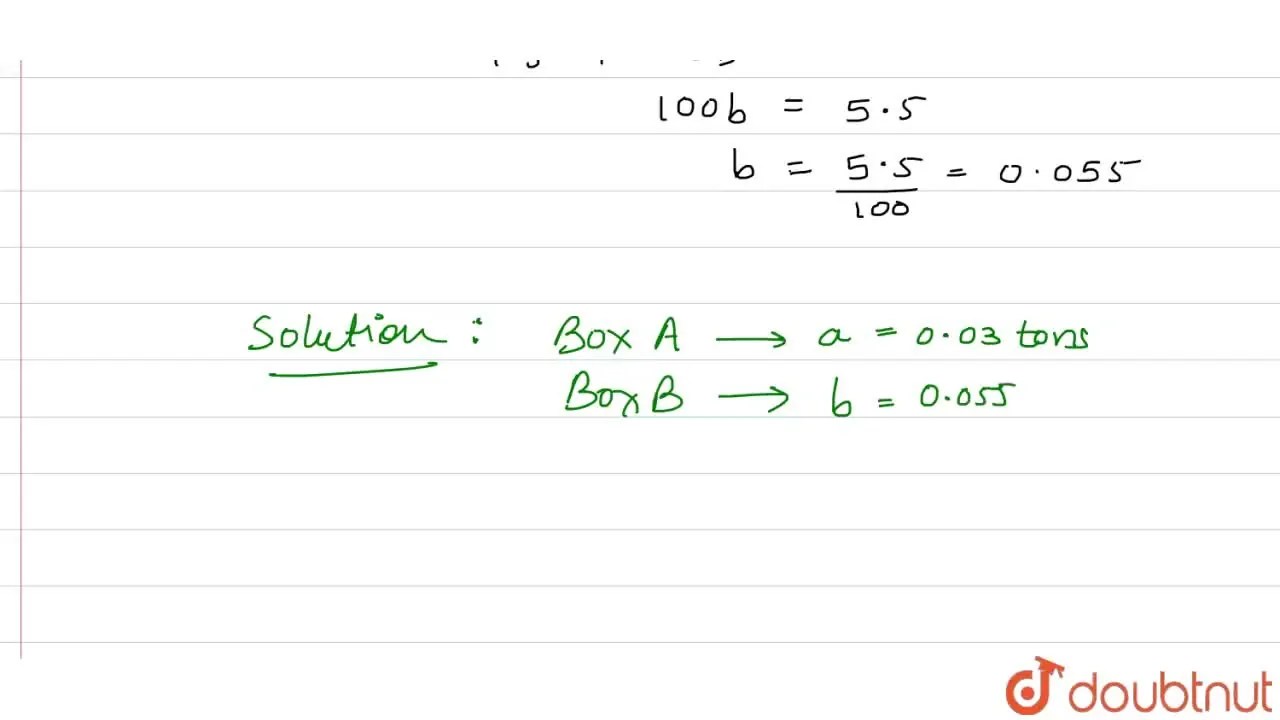 100b = 5.5
b = 5.5/100 = 0.055
Solution : Box A → a = 0.03 tons
Box B → b = 0.055
doubtnut